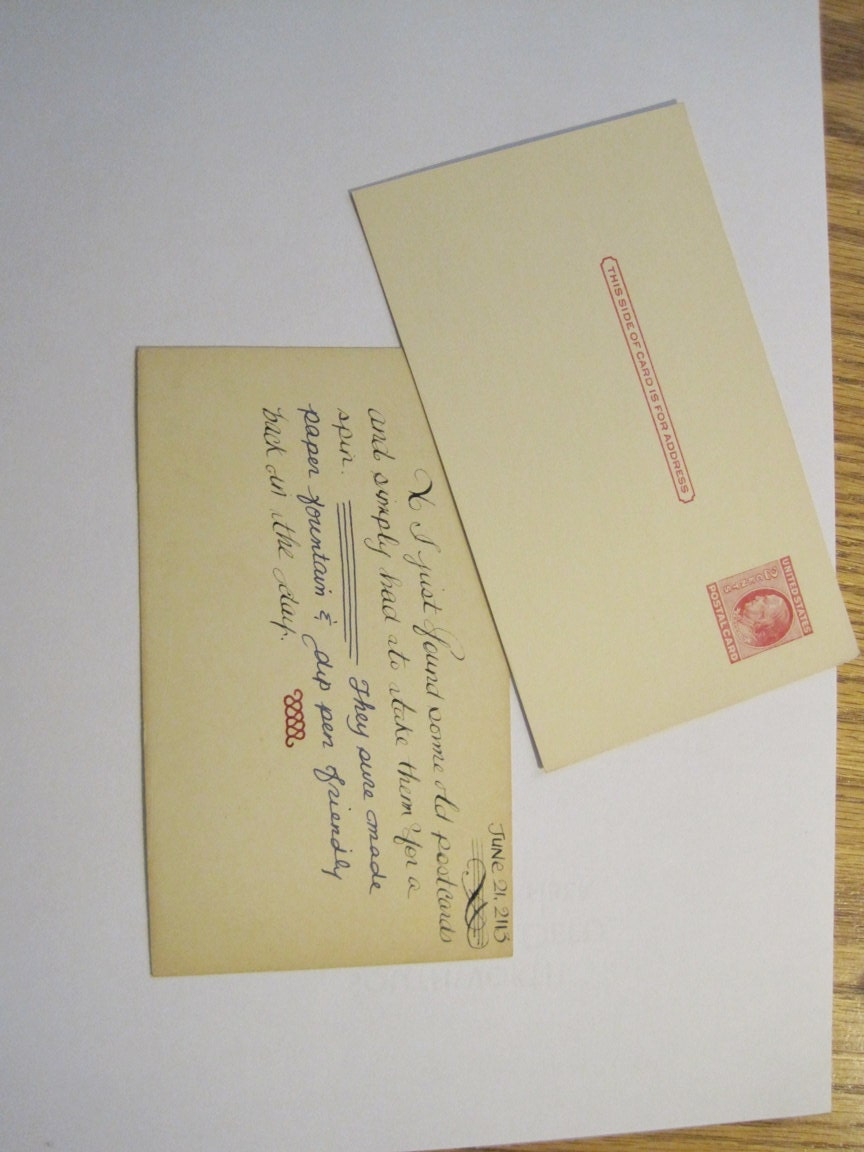 THIS SIDE OF CARD IS FOR ADDRESS
UNITED STATES
POSTAL CARD
JUNE 21, 2113
I just found some old postcards
and simply had to take them for a
spin. They sure made
paper fountain & dip pen friendly
back in the day.